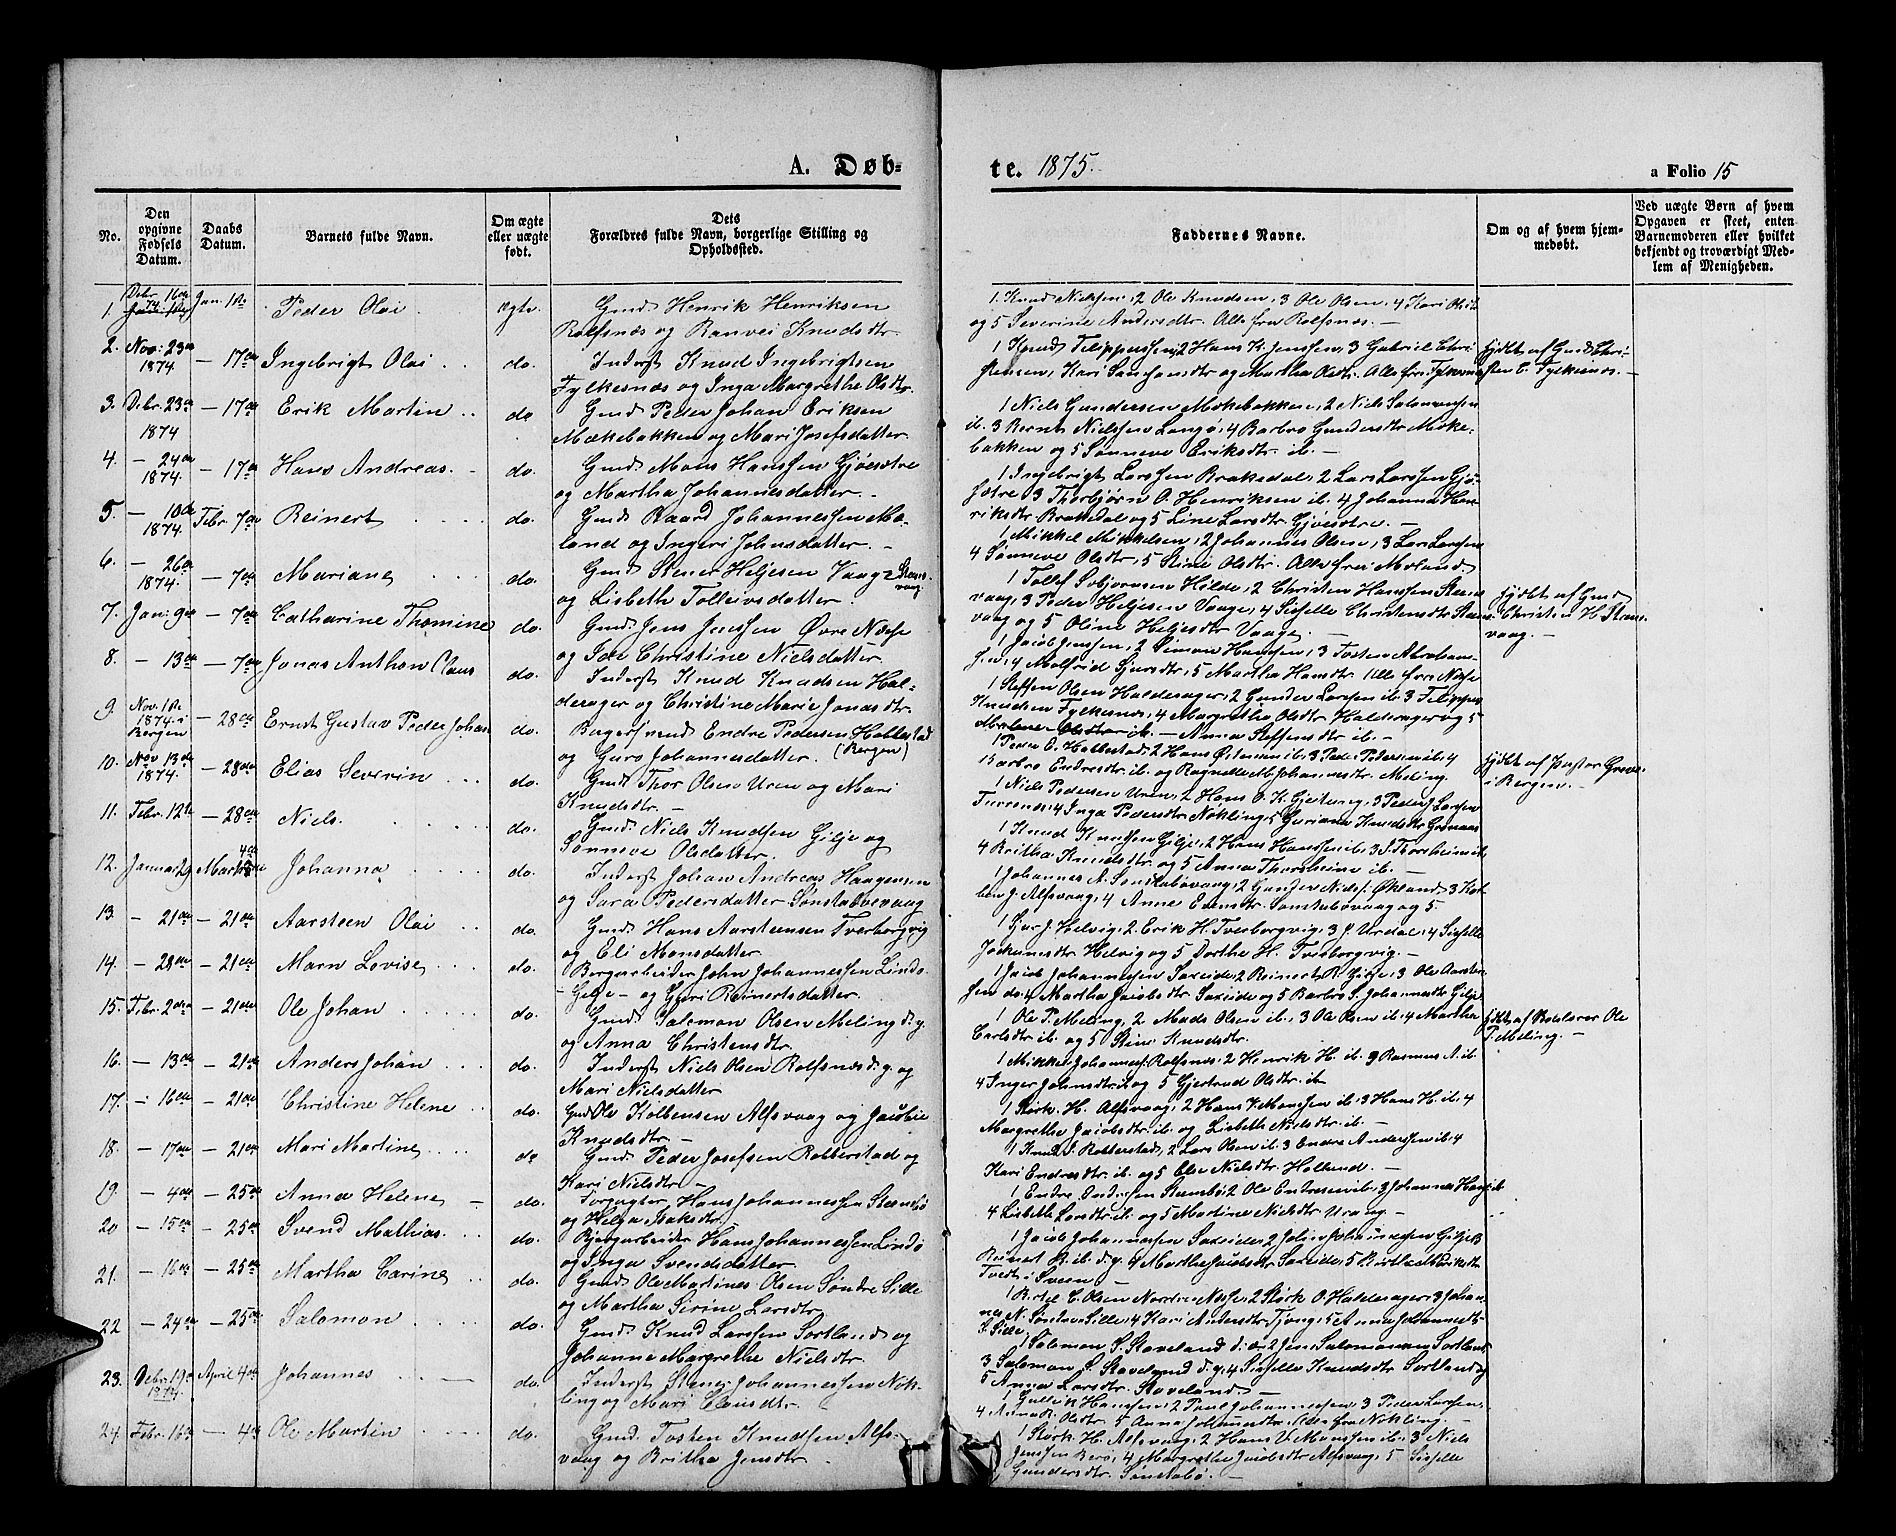 A. Døb=
te. 1875.
a Folio 15
No.
Den opgivne Fødsels Datum.
Daabs Datum.
Barnets fulde Navn.
Om ægte eller uægte født.
Dets Forældres fulde Navn, borgerlige Stilling og Opholdssted.
Faddernes Navne.
Om og af hvem hjemmedøbt.
Ved uægte Børn af hvem Opgaven er skeet, enten Barnemoderen eller hvilket bekjendt og troværdigt Medlem af Menigheden.
1. Debr. 16de 74 Jan. 1ste Peder Olai Ægte. Gmd. Henrik Henriksen
Rolfsnæs og Ranvei Knudsdtr.
1 Knud Nielsen, 2 Ole Knudsen, 3 Ole Olsen, 4 Kari Olsdt.
og 5 Severine Andersdtr. Alle fra Rolfsnæs. —
2. Nov: 23de 1874 — 17de Ingebrigt Olai do. Inderst Knud Ingebrigtsen
Fylkesnæs og Inga Margrethe Olsdtr.
1 Knud Filippussen, 2 Hans K. Jenssen, 3 Gabriel Chri
stensen, Kari og Martha Olsdtr. Alle fra Fylkesnæs
hjdbt af Gmd Chri-
sten C. Fylkesnæs. —
3. Debr. 23de 1874 — 17de Erik Martin do. Gmd. Peder Johan Eriksen
Mækebakken og Mari Josefsdatter.
1 Niels Gundersen Mækebakken, 2 Niels Salomonsen
ib. 3 Bernt Nielsen Langø, 4 Barbro Gundersdtr Mæke-
bakken og 5 Sønneve Eriksdtr. ib. —
4. — 24de 1874 — 17de Hans Andreas. do. Gmd. Mons Hanssen Gjøesætre
og Martha Johannesdatter. —
1 Ingebrigt Larssen Brakedal, 2 Lars Larssen Gjø-
sætre 3 Thorbjørn O. Henriksen ib. 4 Johanna Hen
riksdtr Brakedal og 5 Line Larsdtr. Gjøesætre. —
5. — 10de 1874 Febr. 7de Reinert do. Gmd. Baard Johannessen Mø-
land og Ingeri Johnsdatter. —
1 Mikkel Mikkelsen, 2 Johannes Olsen, 3 Lars Larssen
4 Sønneve Olsdtr, 5 Stine Olsdtr. Alle fra Møland.
6. — 26de 1874. — 7de Mariane do. Gmd Stener Heljesen Vaage Stens-
vaag
og Lisbeth Tolleivsdatter.
1 Tollef Hilde, 2 Christen Hanssen Stens
vaag, 3 Peder Heljesen Vaage, 4 Sisselle Christensdtr Stens
vaag og 5 Oline Heljesdtr Vaage. —
hjdbt af Gmd
Christen H. Stens-
vaag. —
7. Jan: 9de — 7de Catharine Thomine do. Gmd. Jens Jenssen Øvre Næsse
og Christine Nielsdatter.
1 Jacob Jenssen, 2 Simon Hanssen, 3 Tosten Abraham-
sen, 4 Malfrid Sjursdtr, 5 Martha Hansdtr. Alle fra Næsse
8. — 13de — 7de Jonas Anthon Claus do. Inderst Knud Knudsen Hal-
desager og Christine Marie Jonasdtr.
1 Steffen Olsen Haldesager, 2 Gunder Larssen ib. 3 Filippus
Knudsen Fylkesnæs, 4 Margretha Olsdtr. Haldesager og 5
Anna Steffensdtr ib. —
9. Nov. 1ste 1874 i Bergen — 28de Ernst Gustav Peder Johan do. Endre Pedersen Hallestad
(Bergen)
og Guro Johannesdatter.
1 Peder E. Hallestad, 2 Hans Østensen ib. 3 Peder Pedersen ib. 4
Barbro Endresdtr. ib. og Ragnelle M. Johannesdtr. Meling.
hjdbt af Pastor Greve
i Bergen. —
10. Nov 13de 1874. — 28de Elias Severin do. Gmd. Thor Olsen Uren og Mari
Knudsdtr. —
1 Niels Pedersen Uren, 2 Hans O. K. Gjeitung, 3 Peder J. Larssen
4 Inga Pedersdtr. Nøkling, 5 Guriane Knudsdtr
11. Febr. 12te — 28de Niels. do. Gmd. Niels Knudsen Gilje og
Sønneve Olsdatter.
1 Knud Knudssen Gilje, 2 Hans Hanssen ib. 3 J. Thorsheim ib.
4 Britha Knudsdtr. og 5 Anna Thorsheim ib. —
12. Januar 29 Marts 4de Johanna do. Inderst Johan Andreas Haagensen
og Sara Pedersdatter Sønstabøvaag
1 Johannes A. Sønstabøvaag, 2 Gunder Niels: Økland, 3 Kol-
ben J. Alfsvaag, 4 Anne Evensdtr. Sønstabøvaag og 5.
13 — 21de — 21de Aarsteen Olai do. Gmd. Hans Aarsteensen Tverborgvig
og Eli Monsdatter.
1 Gur J. Helvig, 2 Erik H. Tverborgvig, 3 J. Urdal, 4 Sisselle
Jokumsdtr Helvig og 5 Dorthe H. Tverborgvig. —
14. — 28de — 21de Marn Lovise do. Bergarbeider John Johannessen Lindø
— Gilje — og Guri Reinertsdatter.
1 Jacob Johannessen Sakseide, 2 Reinert R. Gilje, 3 Ole Aarsten-
sen do. 4 Martha Jacobsdtr. Sakseide og 5 Barbro S. Johannesdtr Gilje
15. Febr. 2den — 21de Ole Johan do. Gmd. Salomon Olsen Meling d. y.
og Anna Christensdtr.
1 Ole P. Meling, 2 Mads Olsen ib., 3 Ole Olsen ib. 4 Martha
Carlsdtr. ib. og 5 Stine Knudsdtr.
hjdbt af Kirkelærer Ole
P. Meling. —
16. — 13de — 21de Anders Johan do. Inderst Niels Olsen Rolfsnæs d. y. og
Mari Nielsdatter
1 Mikkel Johannes: Rolfsnæs, 2 Henrik H. ib. 3 Rasmus A. ib.
4 Inger Johnsdtr. ib. og 5 Gjertrud Olsdtr. ib
17. — 16de — 21de Christine Helene do. Gmd Ole Kolbensen Alfsvaag og
Knudsdtr. —
1 Størk. H. Alfsvaag, 2 Hans V. Monssen ib. 3 Hans H. ib. 4
Margrethe Jacobsdtr. ib. og Lisbeth Nielsdtr. ib.
18. — 17de — 21de Mari Martine do Gmd. Peder Josefsen Robberstad og
Kari Nielsdtr —
1 Knud J. Robberstad, 2 Lars Olsen ib. 3 Endre Anderssen ib. 4
Kari Endresdtr. ib. og 5 Nielsdtr. Hollund. —
19. — 4de — 25de Anna Helene do. Forpagter Hans Johannessen Stensbø
og Helga Isaksdtr.
1 Endre Stensbø, 2 Ole Endresen ib. 3 Johannes
4 Lisbeth Larsdtr. ib. og 5 Martine Nielsdtr Urang. —
20 — 15de — 25de Svend Mathias. do. Bjergarbeider Hans Johannessen Lindø
og Inga Svendsdatter
1 Jacob Johannessen Sakseide, 2 John Johannessen Gilje, 3
Reinert R. ib. d. y. 4 Martha Jacobsdtr. Sakseide, 5
Tvedt i Sveen —
21. — 16de — 25de Martha Carine do. Gmd. Ole Martines Olsen Søndre Sille
og Martha Sirine Larsdtr.
1 Bertel C. Olsen Nordre Næsse, 2 Størk O. Haldesager, 3 Johan-
nes N. Søndre Sille, 4 Kari Andersdtr Tjong, 5 Anna Johannesdtr
S. Sille
22 — 24de — 25de Salomon do. Gmd. Knud Larssen Sortland og
Johanne Margrethe Nielsdtr.
1 Salomon S. Staveland d. æ. 2 Jens Salomonsen Sortland
3 Salomon S. Staveland d. y. 4 Sisselle Knudsdtr Sortland og
5 Anna Larsdtr. Staveland. —
23. Debr. 19de 1874. April 4de Johannes do. Inderst Stener Johannessen Nøk-
ling og Mari Clausdtr.
1 Gullik Hanssen, 2 Paul Johannessen, 3 Peder Larssen,
4 Anna R. Olsdtr. 5 Anna Johannesdtr. Alle fra Nøkling. —
24. Febr. 16de — 4de Ole Martin do. Gmd. Tosten Knudsen Alfs-
vaag og Britha Jensdtr.
1 Størk H. Alfsvaag, 2 Hans V. Monssen ib. 3 Niels
Jenssen Berø, 4 Margrethe Jacobsdtr Alfsvaag, 5 Sisselle
Gundersdtr. Sønstabø. —